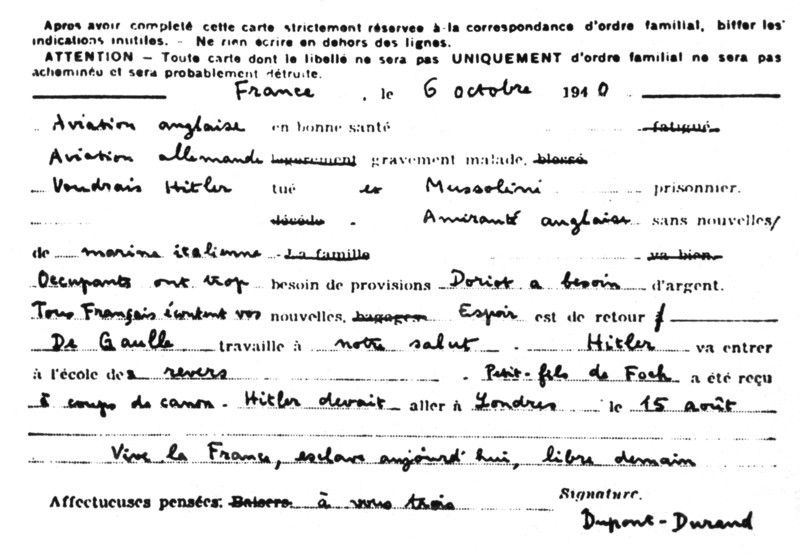 Apres avoir complété cette carte strictement réservee à la correspondance d'ordre familial, biffer les
indications inutiles. - Ne rien ecrire en dehors des lignes.
ATTENTION - Toute carte dont le libellé ne sera pas UNIQUEMENT d'ordre familial ne sera pas
acheminée et sera probablement détruite.
France, le 6 octobre 1940
Aviation anglaise en bonne santé fatigué.
Aviation allemande légèrement gravement malade, blessé
Voudrais Hitler tué et Mussolini prisonnier.
décédé. Amirauté anglaise sans nouvelles/
de marine italienne - La famille va bien.
Occupants ont trop besoin de provisions Doriot a besoin d'argent.
Tous Français écoutent vos nouvelles, bagages Espoir est de retour
De Gaulle travaille à notre salut. Hitler va entrer
à l'école des revers. Petit-fils de Foch a été reçu
à coups de canon. Hitler devait aller à Londres le 15 août
Vive la France, esclave aujourd'hui, libre demain
Affectueuses pensées. Baisers. à vous trois Signature.
Dupont-Durand